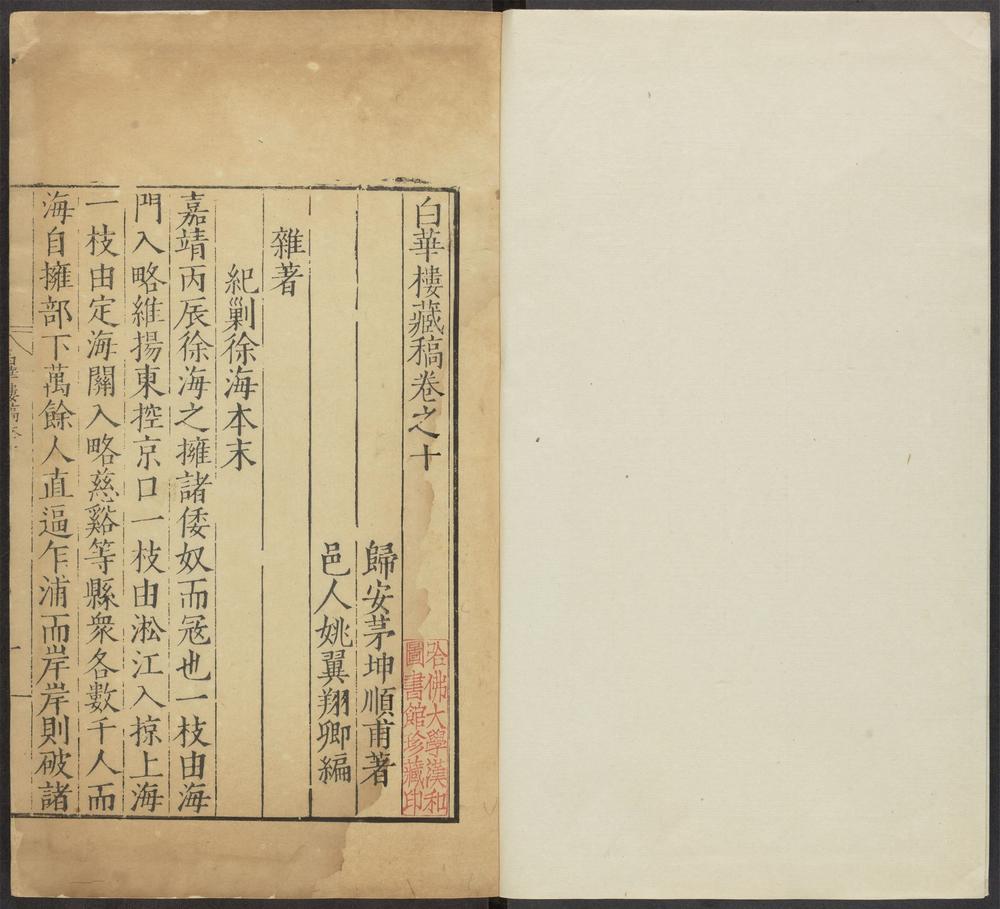 白華樓藏稿卷之十
歸安茅坤順甫著
邑人姚翼翔卿編
雜著
紀剿徐海本末
嘉靖丙辰徐海之擁諸倭奴而冦也一枝由海
門入略維揚東控京口一枝由淞江入掠上海
一枝由定海關入略慈谿等縣衆各數千人而
海自擁部下萬餘人直逼乍浦而岸岸則破諸
哈佛大學漢和
圖書館珍藏印